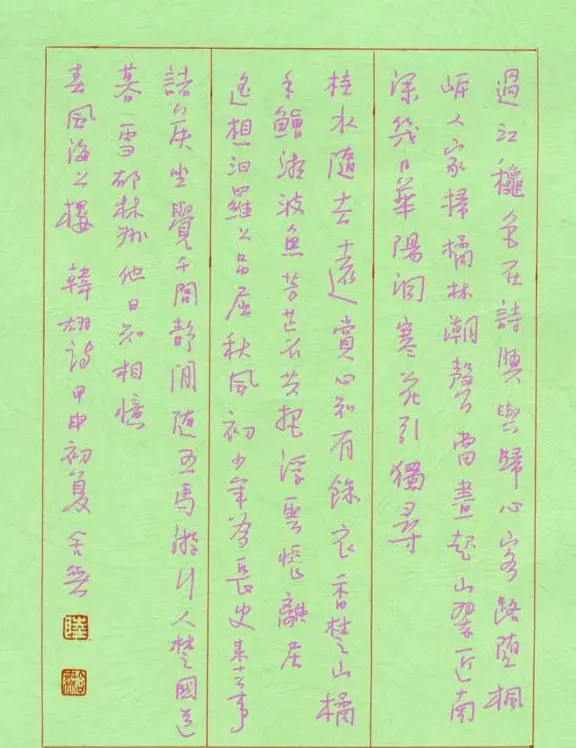 過江穐色在詩興與歸心客路隨楓
岸人家掃橘林潮聲當晝起山翠近南
深幾日華陽洞寒花引獨尋
桂水隨去遠賞心知有餘衣香楚山橘
手鱠湘波魚芳芷不共把浮雲悵離居
遙想汨羅上吊屈秋風初少年為長史東去事
諸侯坐覺千閭靜閒隨五馬遊行人楚國道
暮雪郁林州他日知相憶
春風海上樓 韓翃詩甲申初夏舍無
陸